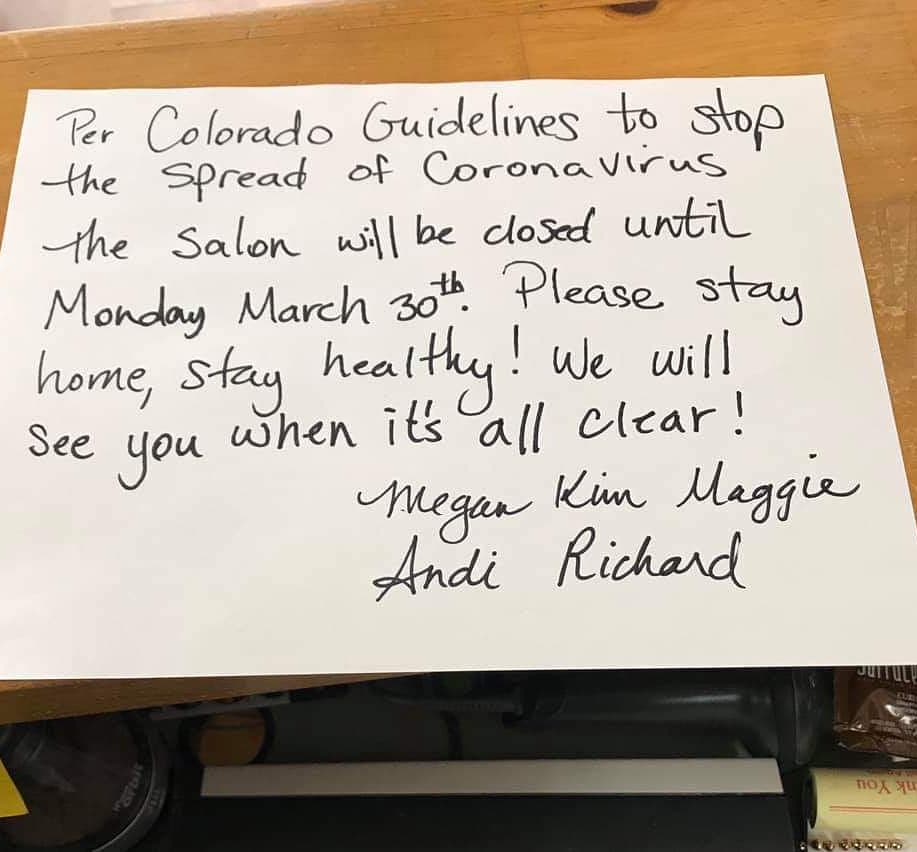 Per Colorado Guidelines to stop
the spread of Coronavirus
the salon will be closed until
Monday March 30th. Please stay
home, stay healthy! We will
see you when it's all clear!
Megan Kim Maggie
Andi Richard
nk You